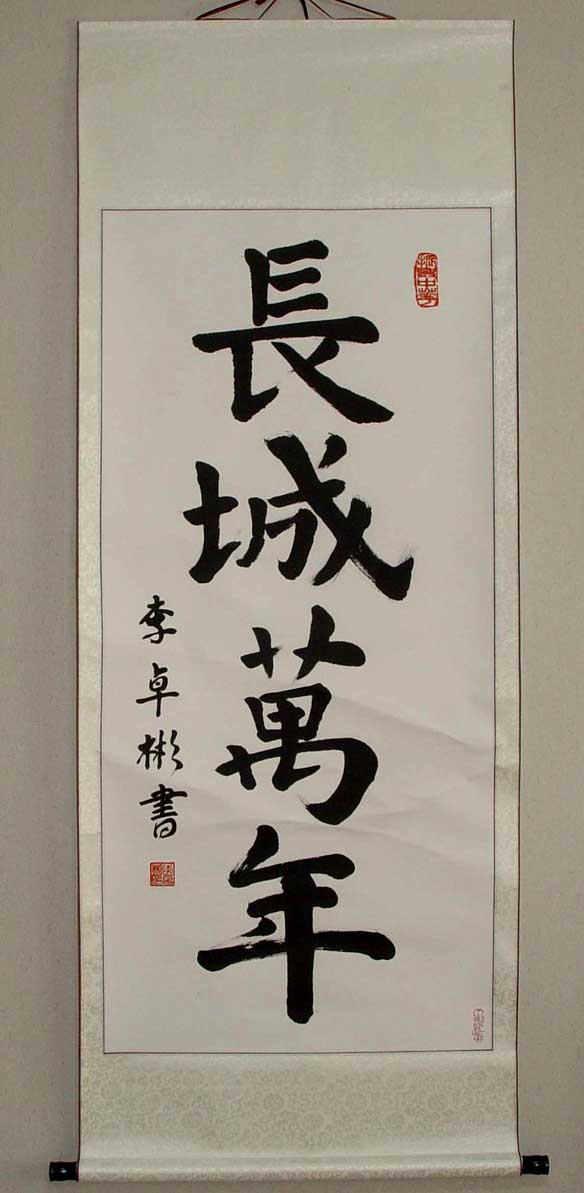 長城萬年
李卓彬書